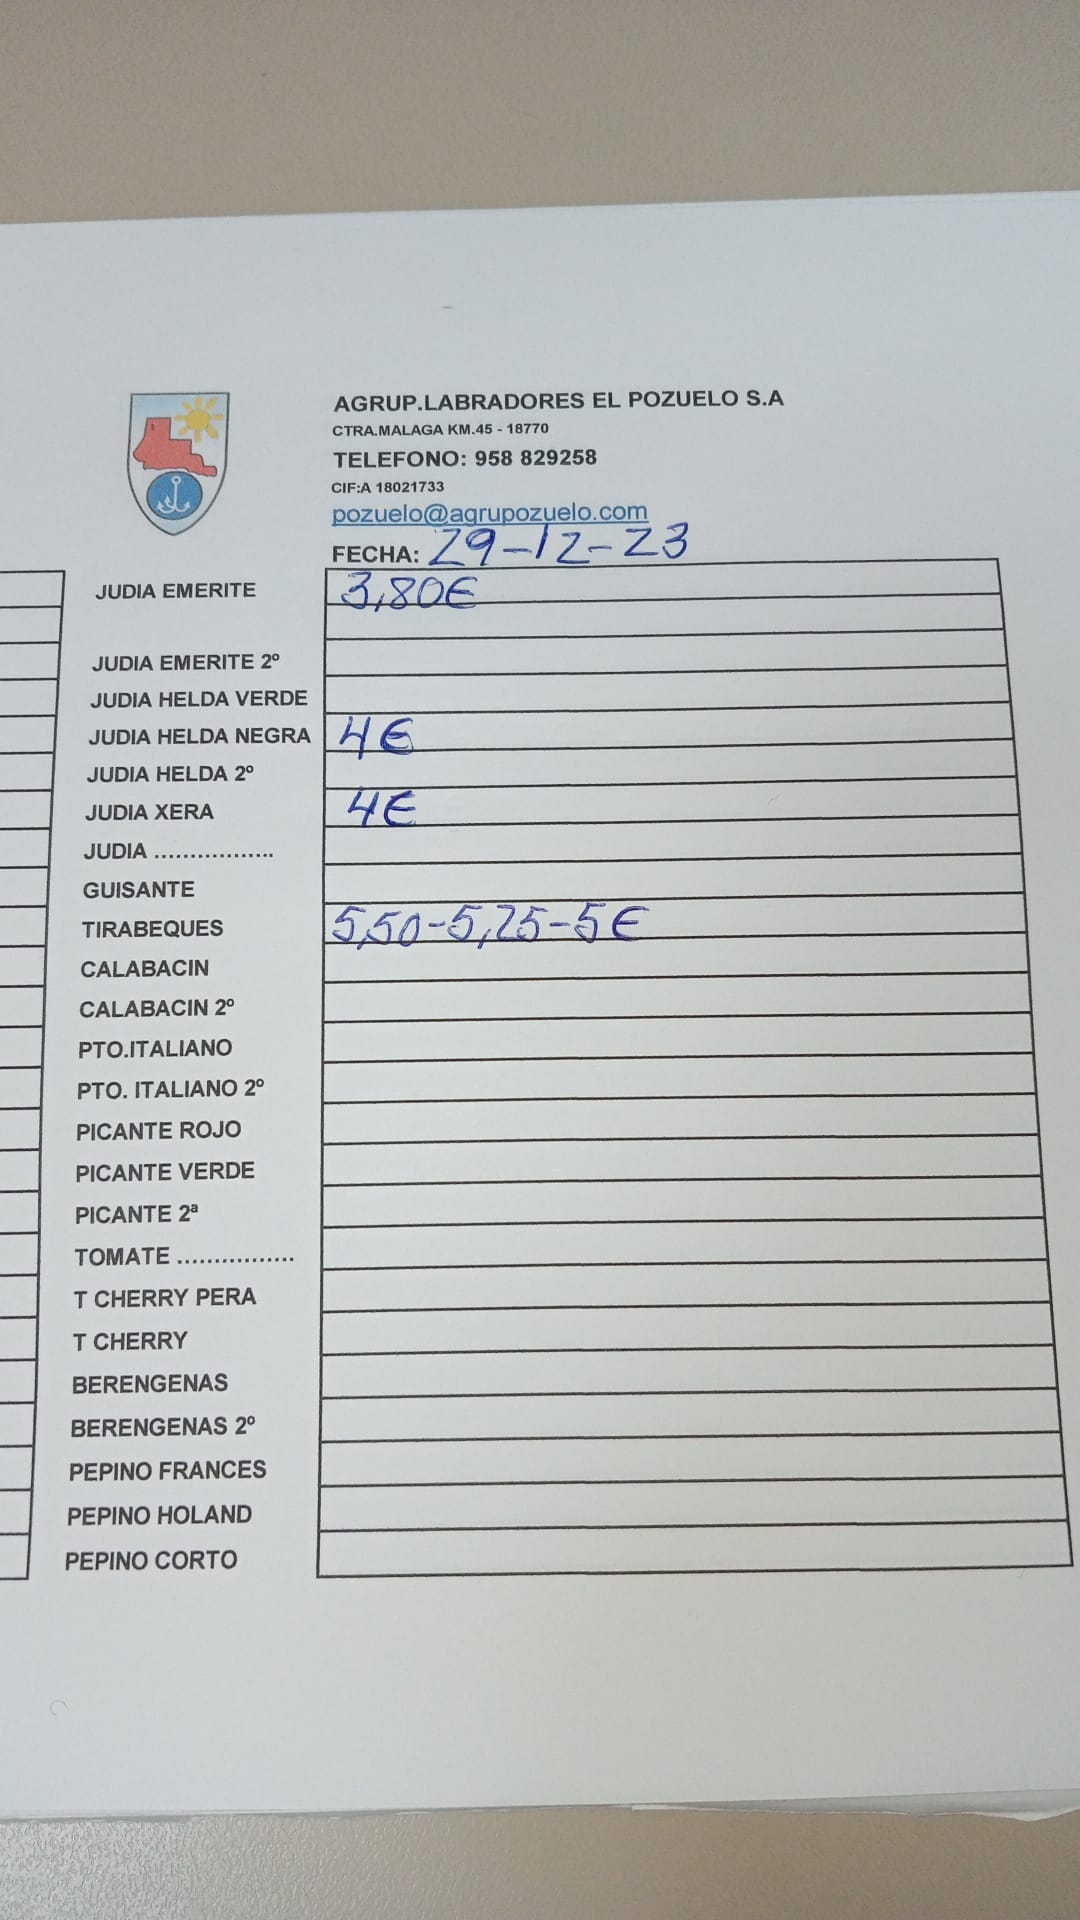 AGRUP.LABRADORES EL POZUELO S.A
CTRA.MALAGA KM.45 - 18770
TELEFONO: 958 829258
CIF:A 18021733
pozuelo@agrupozuelo.com
FECHA: 29-12-23
JUDIA EMERITE 3,80€
JUDIA EMERITE 2º
JUDIA HELDA VERDE
JUDIA HELDA NEGRA 4€
JUDIA HELDA 2º
JUDIA XERA 4€
JUDIA .................
GUISANTE
TIRABEQUES 5,50-5,25-5€
CALABACIN
CALABACIN 2º
PTO.ITALIANO
PTO. ITALIANO 2º
PICANTE ROJO
PICANTE VERDE
PICANTE 2ª
TOMATE ................
T CHERRY PERA
T CHERRY
BERENGENAS
BERENGENAS 2º
PEPINO FRANCES
PEPINO HOLAND
PEPINO CORTO